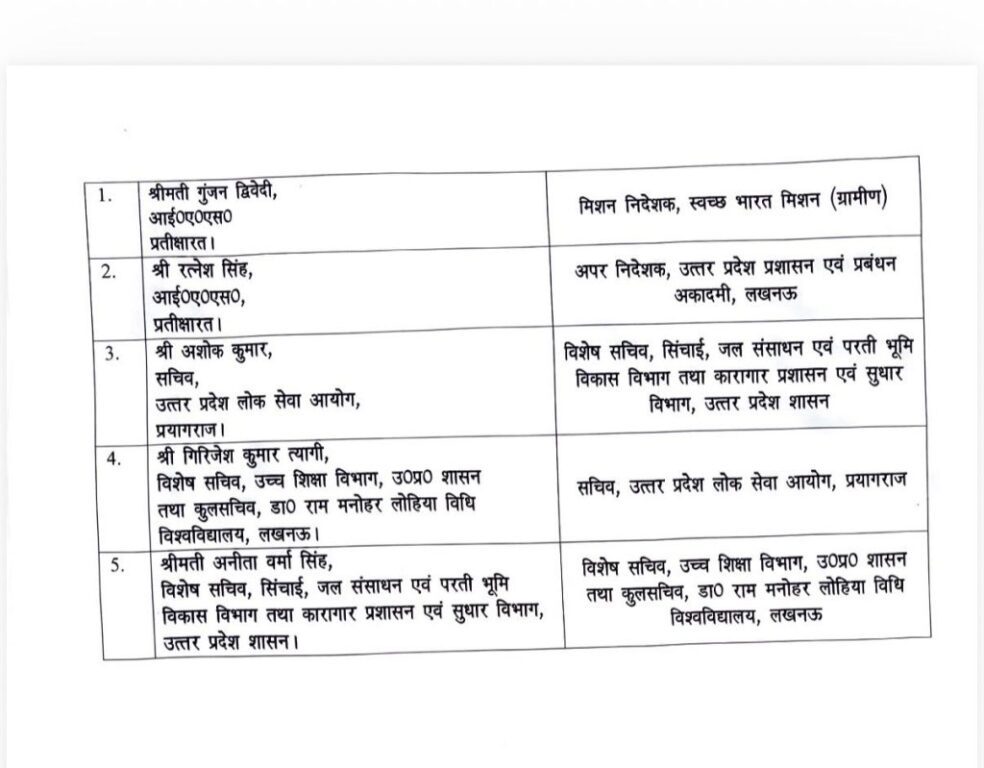 1.
श्रीमती गुंजन द्विवेदी,
आई0ए0एस0
प्रतीक्षारत।
मिशन निदेशक, स्वच्छ भारत मिशन (ग्रामीण)
2.
श्री रत्नेश सिंह,
आई0ए0एस0,
प्रतीक्षारत।
अपर निदेशक, उत्तर प्रदेश प्रशासन एवं प्रबंधन
अकादमी, लखनऊ
3.
श्री अशोक कुमार,
सचिव,
उत्तर प्रदेश लोक सेवा आयोग,
प्रयागराज।
विशेष सचिव, सिंचाई, जल संसाधन एवं परती भूमि
विकास विभाग तथा कारागार प्रशासन एवं सुधार
विभाग, उत्तर प्रदेश शासन
4.
श्री गिरिजेश कुमार त्यागी,
विशेष सचिव, उच्च शिक्षा विभाग, उ0प्र0 शासन
तथा कुलसचिव, डा0 राम मनोहर लोहिया विधि
विश्वविद्यालय, लखनऊ।
सचिव, उत्तर प्रदेश लोक सेवा आयोग, प्रयागराज
5.
श्रीमती अनीता वर्मा सिंह,
विशेष सचिव, सिंचाई, जल संसाधन एवं परती भूमि
विकास विभाग तथा कारागार प्रशासन एवं सुधार विभाग,
उत्तर प्रदेश शासन।
विशेष सचिव, उच्च शिक्षा विभाग, उ0प्र0 शासन
तथा कुलसचिव, डा0 राम मनोहर लोहिया विधि
विश्वविद्यालय, लखनऊ